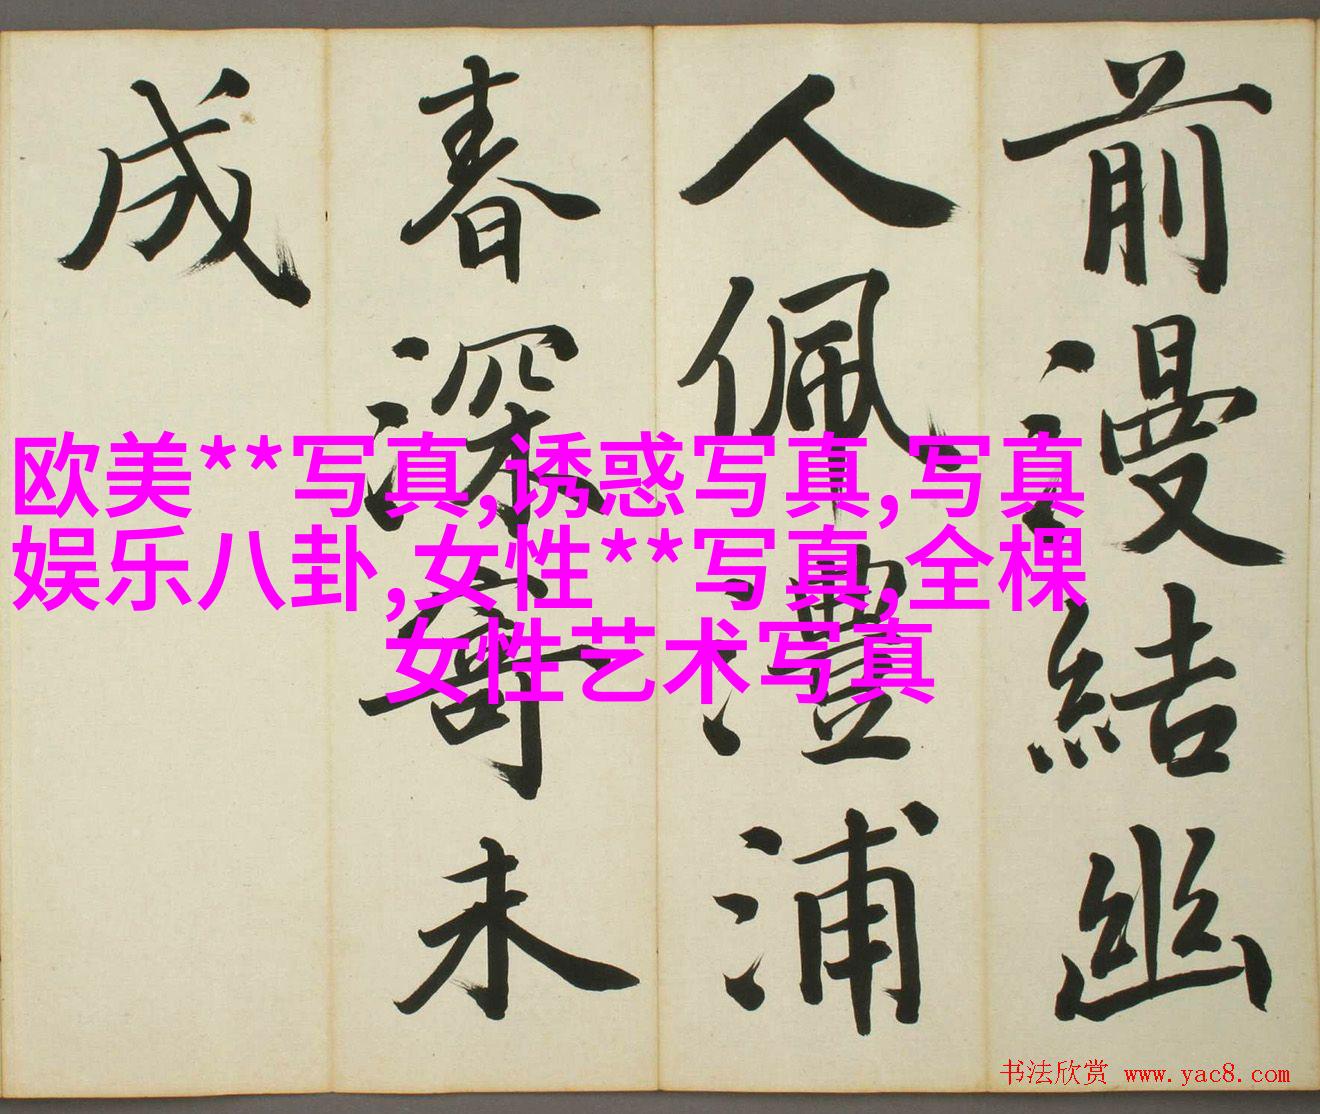 前漫結幽
人佩澧浦
春深寄未
成
欧美**写真,诱惑写真,写真
娱乐八卦,女性**写真,全棵
女性艺术写真
书法欣赏 www.yac8.com